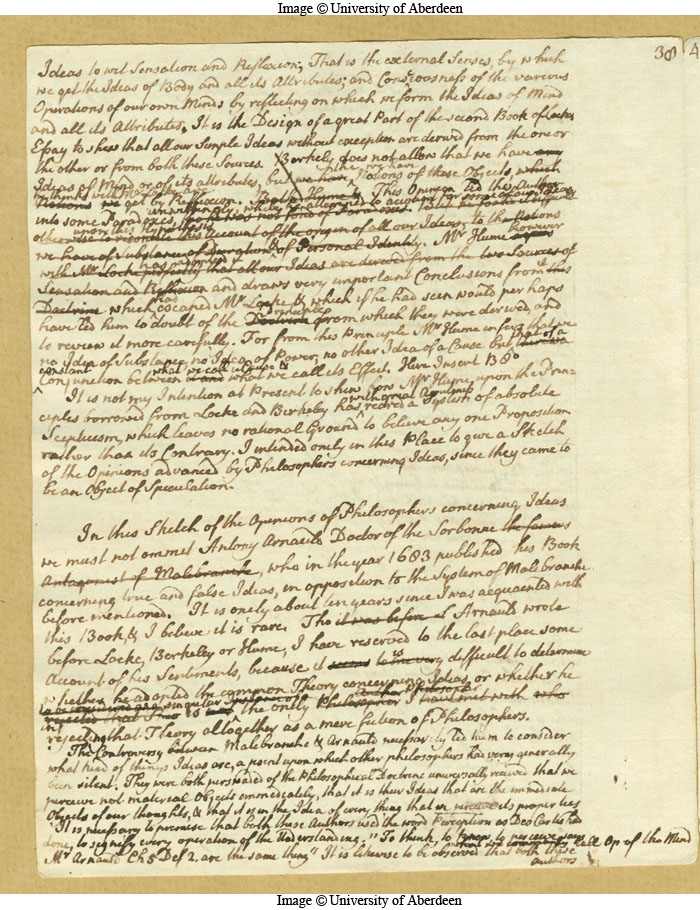 Image © University of Aberdeen
38 4
Ideas to wit Sensation and Reflexion; That is the external Senses, by which
we get the Ideas of Body and all its Attributes; and Consciousness of the various
Operations of our own Minds by reflecting on which we form the Ideas of Mind
and all its Attributes. It is the Design of a great Part of the second Book of Lockes
Essay to shew that all our Simple Ideas without exception are derived from the one or
the other or from both these Sources. Berkely does not allow that we have any
Ideas of Mind or of its attributes, but we have Notions of these Objects, which
we get by Reflexion. This Opinion led this Author
into some Paradoxes,
upon this Hypothesis
otherwise to reconcile this account of the origin of all our Ideas, to the Notions
we have of Substance of Duration & of Personal Identity. Mr Hume however
with Mr Locke perfectly that all our Ideas are derived from the two Sources of
Sensation and Reflexion and draws very important Conclusions from this
Doctrine which had escaped Mr Locke & which if he had seen would perhaps
have led him to doubt of the Doctrine Principle from which they were derived, and
to review it more carefully. For from this Principle Mr Hume infers that we
no Idea of Substance, no Idea of Power, no other Idea of a Cause but that of a
constant what we call its Cause &
Conjunction between it and what we call its Effect. Here Insert
It is not my Intention at Present to shew how Mr Hume upon the Prin-
with great Acuteness
ciples borrowed from Locke and Berkeley has reared a System of absolute
Scepticism, which leaves no rational Ground to believe any one Proposition
rather than its Contrary. I intended onely in this Place to give a Sketch
of the Opinions advanced by Philosophers concerning Ideas, since they came to
be an Object of Speculation.
In this Sketch of the Opinions of Philosophers concerning Ideas
we must not ommit Antony Arnauld Doctor of the Sorbonne the famous
Antagonist of Malebranche, who in the year 1683 published his Book
concerning true and false Ideas, in opposition to the System of Malebranche
before mentioned. It is onely about ten years since I was acquainted with
this Book, & I believe it is rare. Tho it was before Arnauld wrote
before Locke, Berkeley or Hume, I have reserved to the last place some
Account of his Sentiments, because it seems to be very difficult to determine
whether he adopted the common Theory concerning Ideas, or whether he
is the only Philosopher I have met with who
rejecting that Theory altogether as a mere fiction of Philosophers.
The Controversy between Malebranche & Arnauld necessarily led him to consider
what kind of things Ideas are, a point upon which other philosophers had very generally
been silent. They were both perswaded of the Philosophical Doctrine universally received that we
perceive not material Objects immediately, that it is their Ideas that are the immediate
Objects of our thoughts, & that it is in the Idea of every thing that we perceive its properties
It is necessary to premise that both these Authors used the word Perception as Des Cartes had
done, to signify every operation of the Understanding. "To think, to know, to perceive says
Mr Arnauld Ch 5 Def 2. are the same thing" It is likewise to be observed that both these
authors
call Op of the Mind
Image © University of Aberdeen